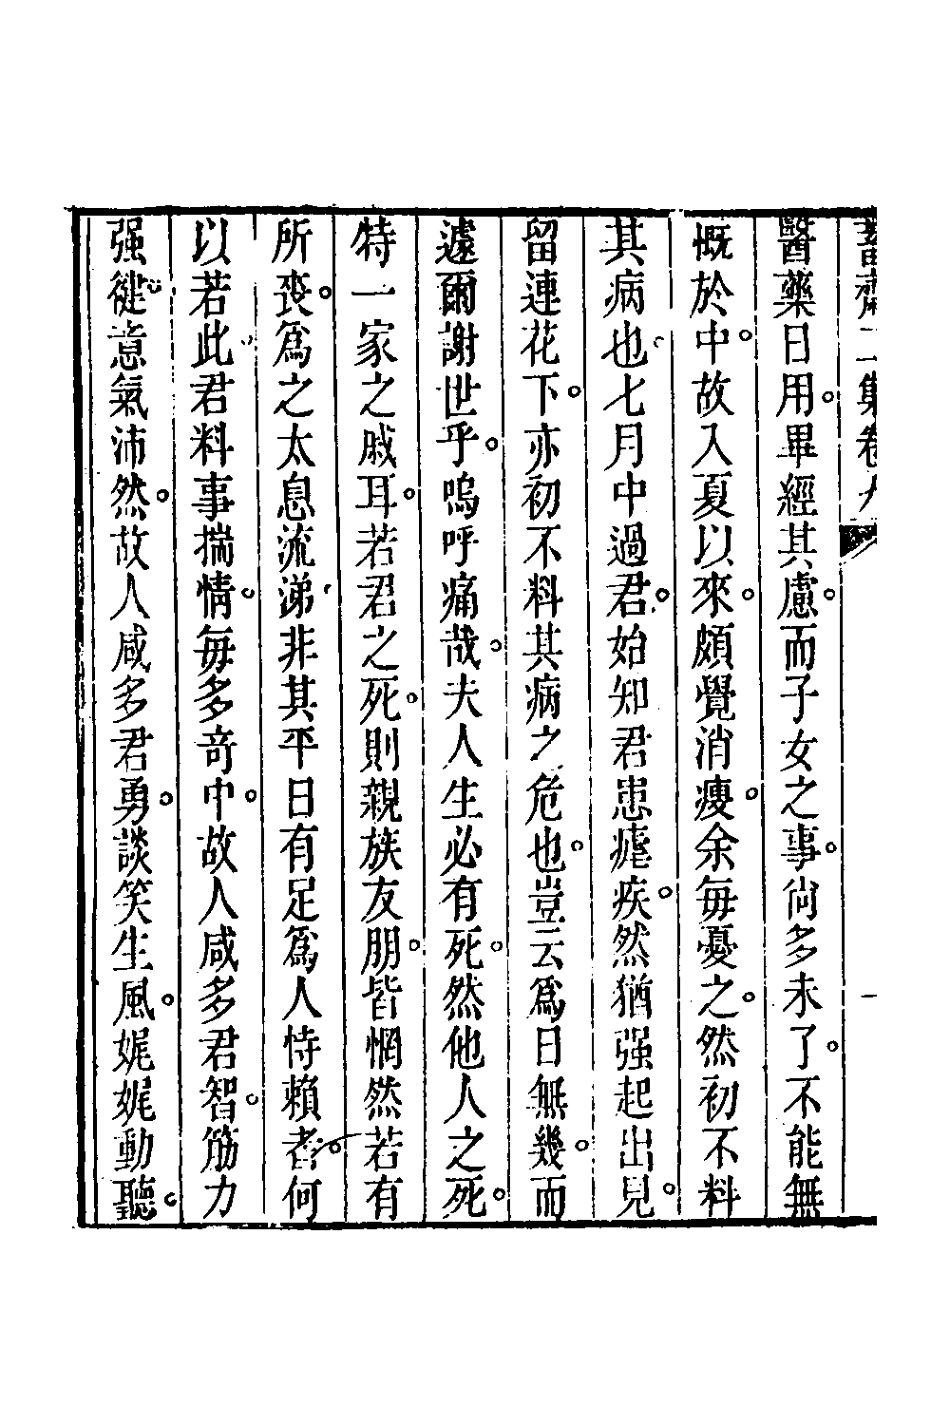 蓄齋二集卷
醫藥日用。畢經其慮。而子女之事。尙多未了。不能無
慨於中。故入夏以來。頗覺消瘦。余毎憂之。然初不料
其病也。七月中過君。始知君患瘧疾。然猶强起出見。
留連花下。亦初不料其病之危也。豈云爲日無幾。而
遽爾謝世乎。嗚呼痛哉。夫人生必有死。然他人之死。
特一家之戚耳。若君之死。則親族友朋。皆惘然若有
所喪。爲之太息流涕。非其平日有足爲人恃賴者。何
以若此。君料事揣情。毎多奇中。故人咸多君智。筋力
强徤。意氣沛然。故人咸多君勇。談笑生風。娓娓動聽。